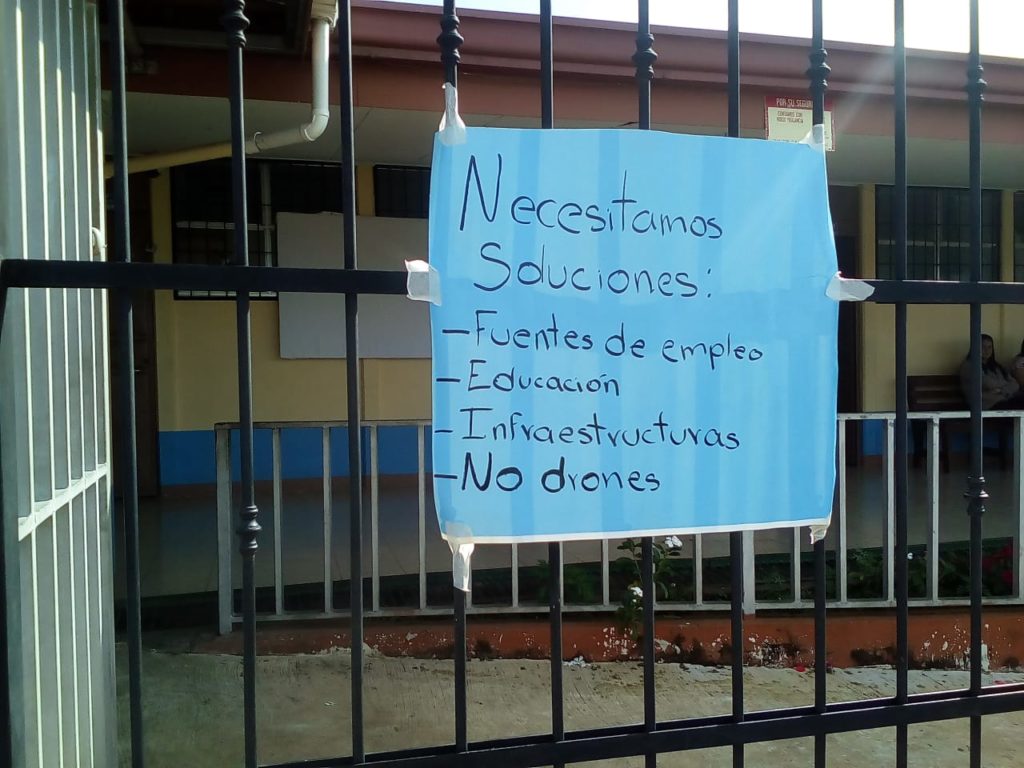 POR SU SEGURI
Necesitamos
Soluciones:
- Fuentes de empleo
- Educación
- Infraestructuras
- No drones